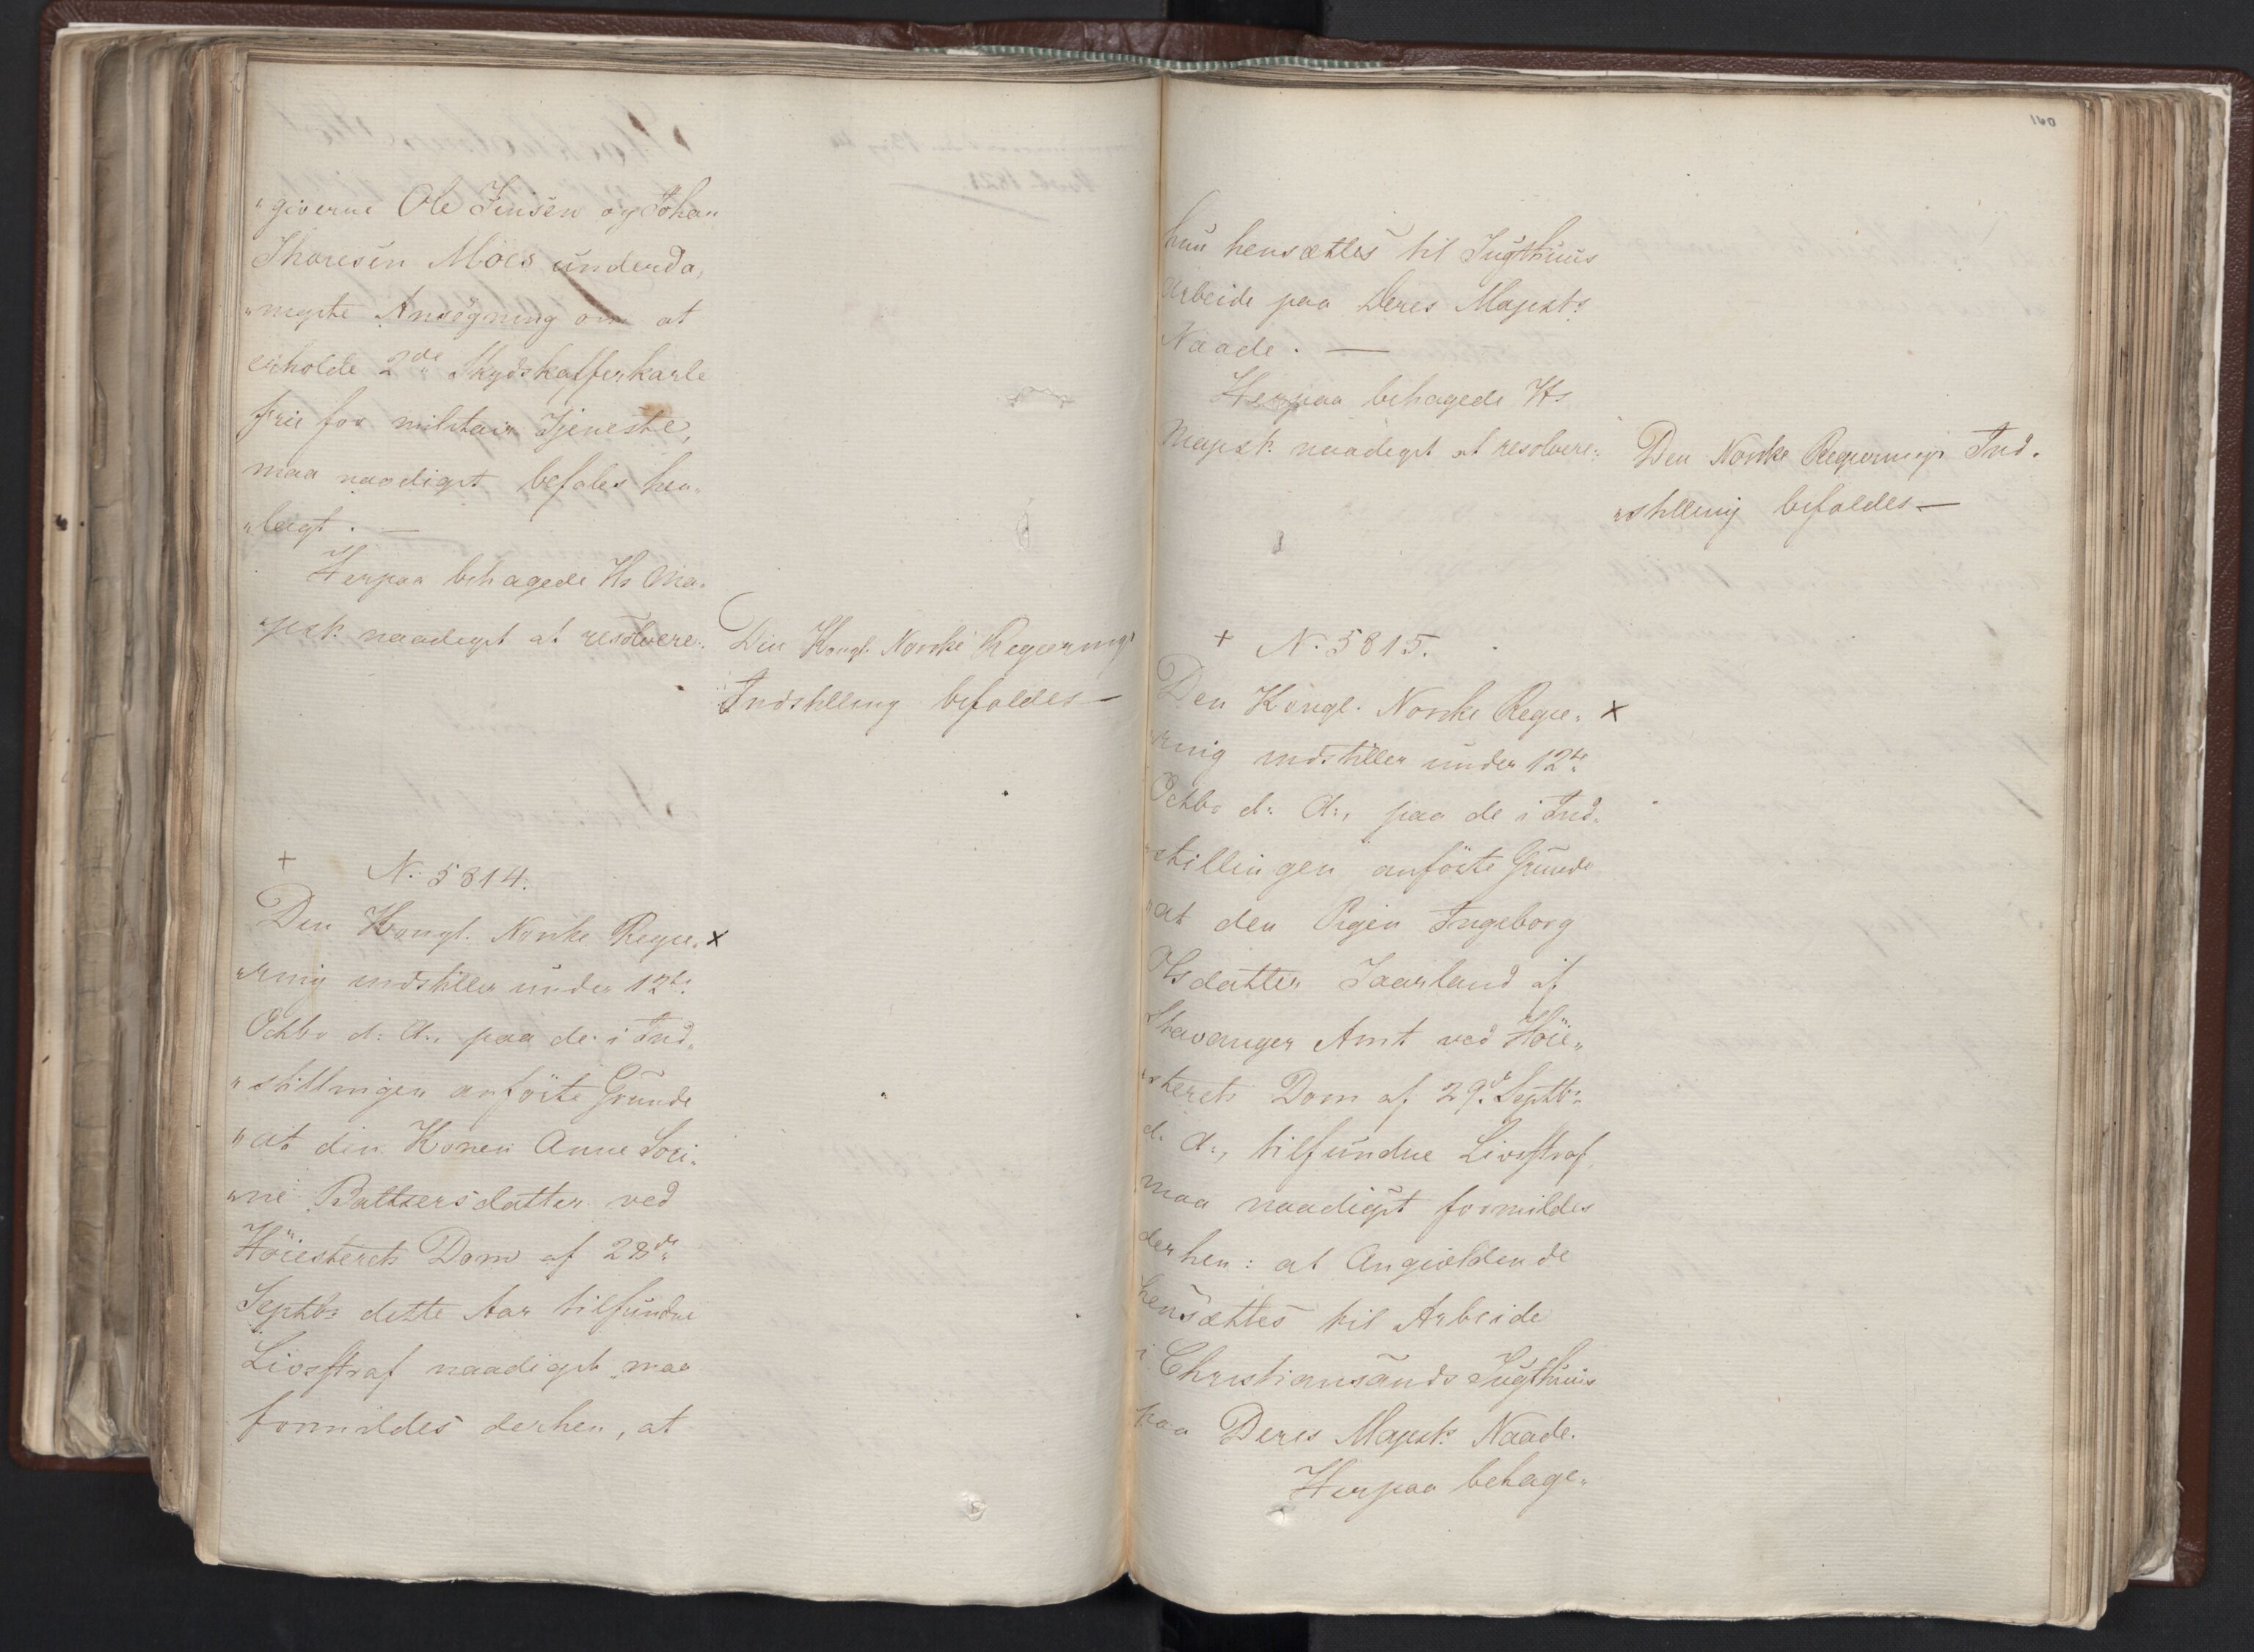 "giverne Ole Jensen og Johan
Thoresen Moes underda,
"nigste Ansøgning om at
erholde 2de Skydskafferkarle
frie for militair Tjeneste,
maa naadigst befales hen„
"lagt. —
Herpaa behagede Hs Ma„
"jest: naadigst at resolvere:
Den Kongl. Norske Regierings
Indstilling bifaldes —
+ No 5814.
Den Kongl. Norske Regie„ x
"ring indstiller under 12te
Octbr d: A:, paa de i Ind„
"stillingen anførte Grunde
"at den Konen Anne Lovi„
"ne Baltzersdatter ved
Høiesterets Dom af 28de
Septbr dette Aar tilfundne
Livsstraf naadigst maa
formildes derhen, at
160
hun hensættes til Tugthuus
Arbeide paa Deres Majests
Naade. —
Herpaa behagede Hs
Majest: naadigst at resolvere:
Den Norske Regierings Ind„
"stilling bifaldes —
+ No 5815.
Den Kongl. Norske Regie„ x
"ring indstiller under 12te
Octbr d: A:, paa de i Ind„
"stillingen anførte Grunde
"at den Pigen Ingeborg
datter Saarland af
Stavanger Amt ved Høie„
"sterets Dom af 29de Septbr
d: A:, tilfundne Livsstraf,
maa naadigst formildes
derhen: at Angieldende
hensættes til Arbeide
i Christiansands Tugthuus
paa Deres Majests Naade.
Herpaa behage„